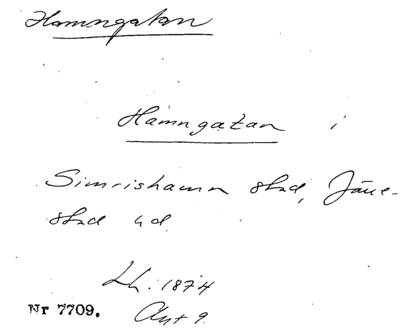 Hamngatan
Hamngatan i
Simrishamn stad, Järre-
stad hd.
Lh. 1874
Nr 7709. Akt 9.